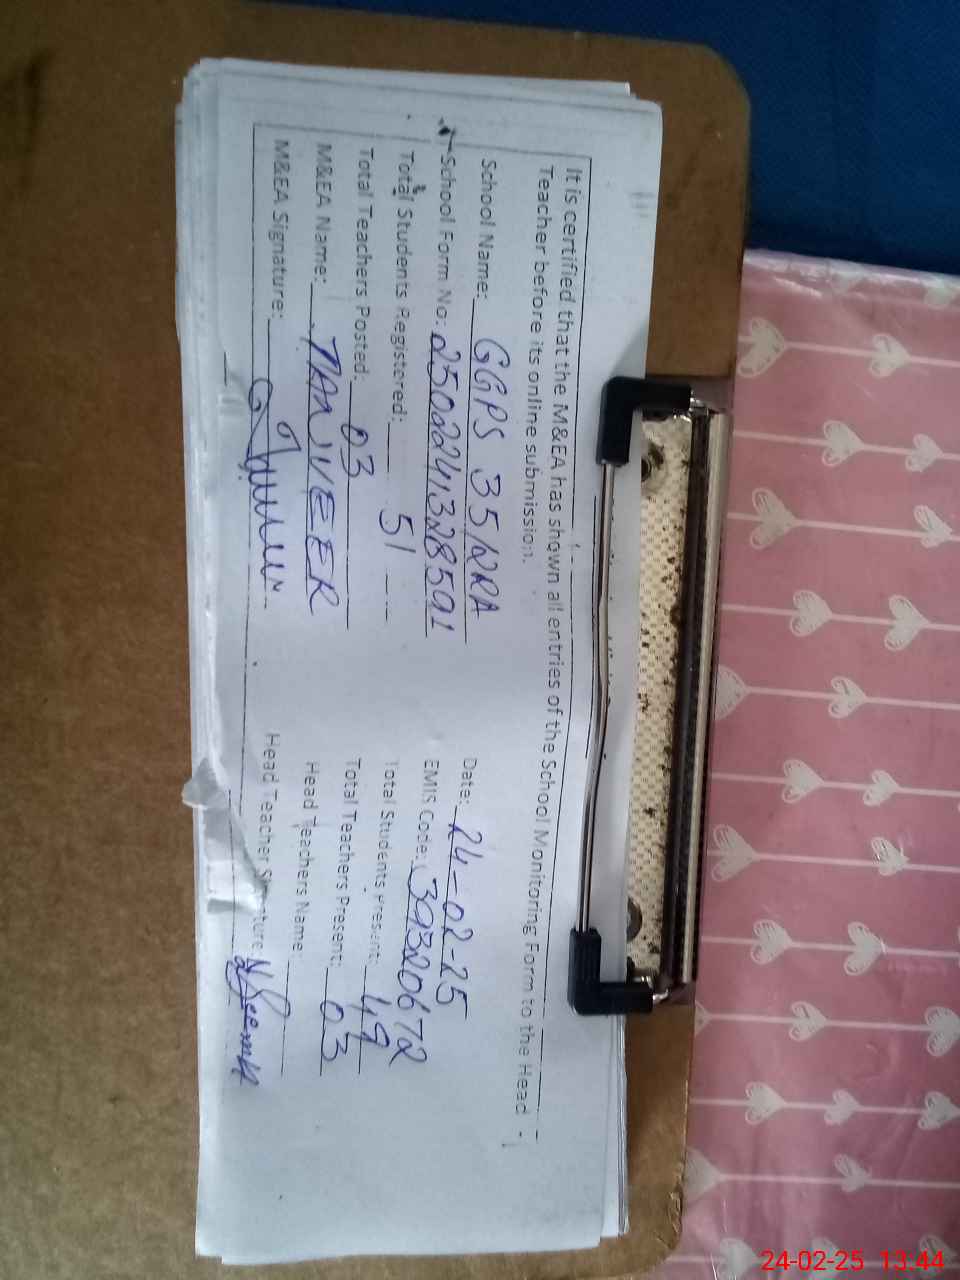 It is certified that the M&EA has shown all entries of the School Monitoring Form to the Head
Teacher before its online submission.
School Name: GGPS 35/2RA Date: 24-02-25
School Form No: 2502241328591 EMIS Code: 39320672
Total Students Registered: 51 Total Students Present: 49
Total Teachers Posted: 03 Total Teachers Present: 03
M&EA Name: TANVEER Head Teachers Name:
M&EA Signature: Head Teacher
24-02-25 13:44